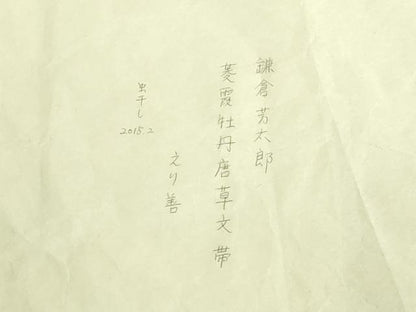 鎌倉芳太郎
菱霞牡丹唐草文 帯
えり善
虫干し
2015.2